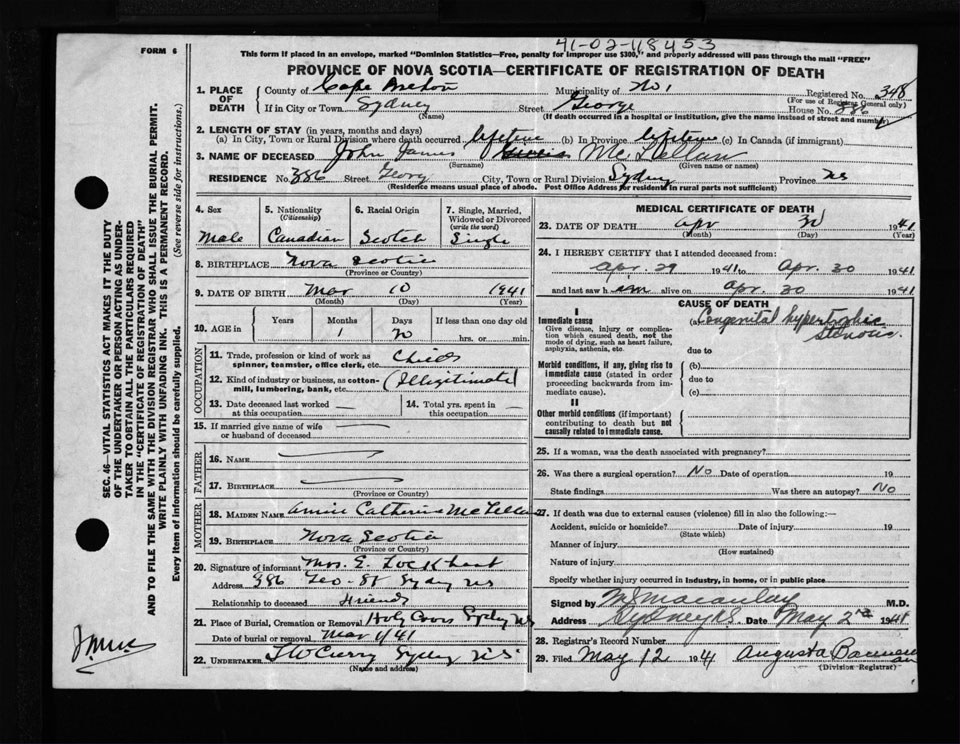 41-02-118453
FORM 6
This form if placed in an envelope, marked "Dominion Statistics—Free, penalty for improper use $300," and properly addressed will pass through the mail "FREE"
PROVINCE OF NOVA SCOTIA—CERTIFICATE OF REGISTRATION OF DEATH
1. PLACE OF DEATH County of Cape Breton Municipality of No 1 Registered No. 348
(For use of Registrar General only)
If in City or Town Sydney Street George House No. 386
(Name) (If death occurred in a hospital or institution, give the name instead of street and number)
2. LENGTH OF STAY (in years, months and days)
(a) In City, Town or Rural Division where death occurred lifetime (b) In Province lifetime (c) In Canada (if immigrant)
3. NAME OF DECEASED John James McLellan
(Surname) (Given name or names)
RESIDENCE No. 386 Street Georg City, Town or Rural Division Sydney Province NS
(Residence means usual place of abode. Post Office Address for residents in rural parts not sufficient)
4. Sex Male
5. Nationality (Citizenship) Canadian
6. Racial Origin Scotch
7. Single, Married, Widowed or Divorced (write the word) Single
8. BIRTHPLACE Nova Scotia
(Province or Country)
9. DATE OF BIRTH Mar 10 1941
(Month) (Day) (Year)
10. AGE in Years Months Days If less than one day old
1 20 hrs. or min.
OCCUPATION
11. Trade, profession or kind of work as spinner, teamster, office clerk, etc. Child
12. Kind of industry or business, as cotton-mill, lumbering, bank, etc. (Illegitimate)
13. Date deceased last worked at this occupation —
14. Total yrs. spent in this occupation —
15. If married give name of wife or husband of deceased —
FATHER
16. NAME —
17. BIRTHPLACE —
(Province or Country)
MOTHER
18. MAIDEN NAME Annie Catherine McLellan
19. BIRTHPLACE Nova Scotia
(Province or Country)
20. Signature of informant Mrs. E Lockhart
Address 386 Geo-St Sydney NS
Relationship to deceased Friend
21. Place of Burial, Cremation or Removal Holy Cross Sydney NS
Date of burial or removal May 1/41
22. UNDERTAKER Curry Sydney N.S.
(Name and address)
MEDICAL CERTIFICATE OF DEATH
23. DATE OF DEATH Apr 30 1941
(Month) (Day) (Year)
24. I HEREBY CERTIFY that I attended deceased from:
Apr. 29 1941 to Apr. 30 1941
and last saw him alive on Apr. 30 1941
CAUSE OF DEATH
I
Immediate cause (a) Congenital hypertrophic
Stenosis.
Give disease, injury or complication which caused death, not the mode of dying, such as heart failure, asphyxia, asthenia, etc.
due to
Morbid conditions, if any, giving rise to immediate cause (stated in order proceeding backwards from immediate cause).
(b)
due to
(c)
II
Other morbid conditions (if important) contributing to death but not causally related to immediate cause.
25. If a woman, was the death associated with pregnancy?
26. Was there a surgical operation? No Date of operation 19
State findings Was there an autopsy? No
27. If death was due to external causes (violence) fill in also the following:—
Accident, suicide or homicide? Date of injury 19
(State which)
Manner of injury
(How sustained)
Nature of injury
Specify whether injury occurred in industry, in home, or in public place
Signed by Macaulay M.D.
Address Sydney N.S. Date May 2nd 1941
28. Registrar's Record Number
29. Filed May 12 194 Augusta
(Division Registrar)
SEC. 46—VITAL STATISTICS ACT MAKES IT THE DUTY
OF THE UNDERTAKER OR PERSON ACTING AS UNDER-
TAKER TO OBTAIN ALL THE PARTICULARS REQUIRED
IN THE "CERTIFICATE OF REGISTRATION OF DEATH"
AND TO FILE THE SAME WITH THE DIVISION REGISTRAR WHO SHALL ISSUE THE BURIAL PERMIT.
WRITE PLAINLY WITH UNFADING INK. THIS IS A PERMANENT RECORD.
Every item of information should be carefully supplied. (See reverse side for instructions.)